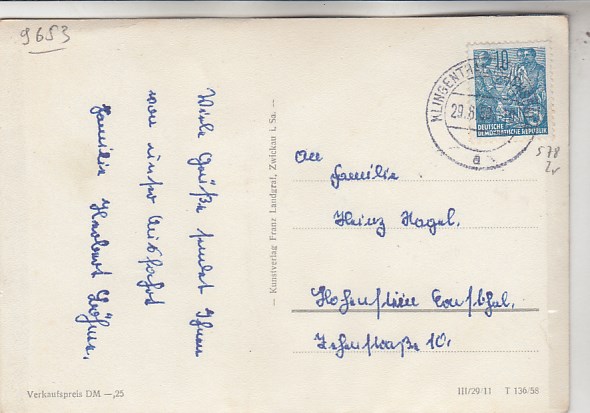 9653
Viele Grüße sendet Ihnen
von unser Ausfahrt
Familie Herbert
— Kunstverlag Franz Landgraf, Zwickau i. Sa. —
10
KLINGENTHAL
29.8.
a
DEUTSCHE
DEMOKRATISCHE REPUBLIK
578
An
Familie
Heinz Nagel.
Hohenstein Ernstthal.
10.
Verkaufspreis DM —,25
III/29/11 T 136/58